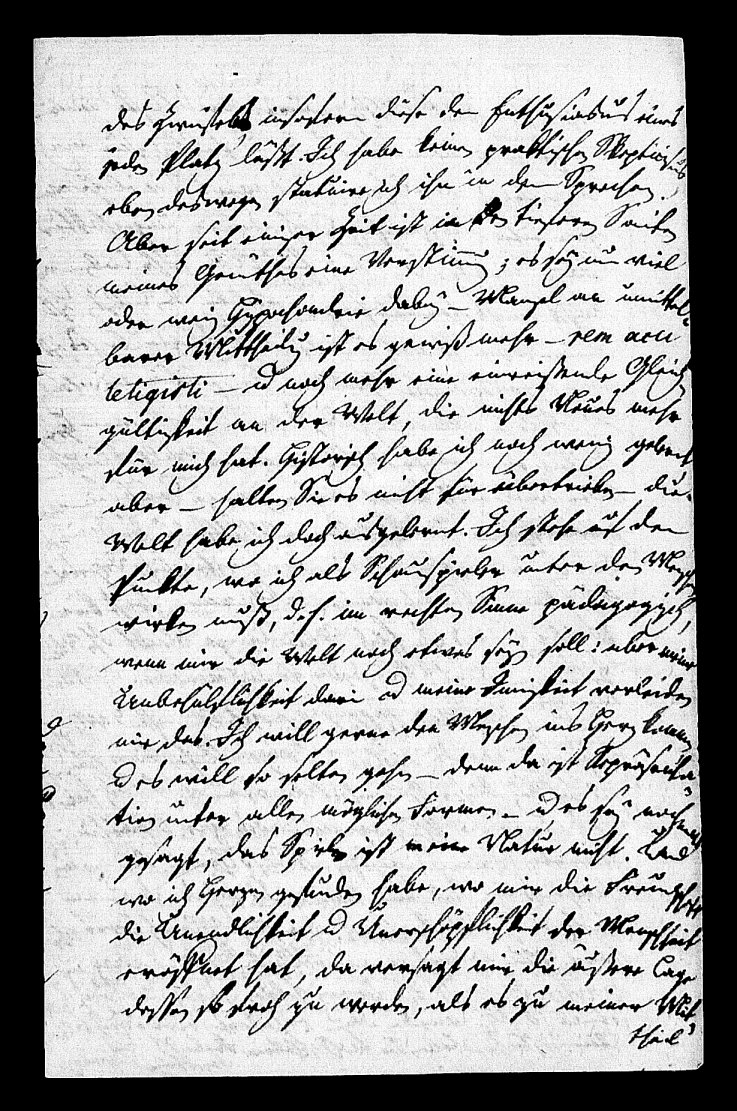 des Zweifels, insofern diese dem Enthusiasmus eines
jeden Platz läßt. Ich habe keinen praktischen Skepticismus
eben deswegen statuire ich ihn in dem Sprechen.
Aber seit einiger Zeit ist in den tieferen Saiten
meines Gemüthes eine Verstimmung; es sey nun viel
oder wenig Hypochondrie dabey – Mangel an unmittel-
barer Mittheilung ist es gewiß mehr – rem acu
tetigisti – u noch mehr eine einreissende Gleich-
gültigkeit an der Welt, die nichts Neues mehr
für mich hat. Historisch habe ich noch wenig gelernt
aber – halten Sie es nicht für übertrieben – die
Welt habe ich doch ausgelernt. Ich stehe auf dem
Punkte, wo ich als Schauspieler unter den Menschen
wirken muß, d.h. im rechten Sinne pädagogisch,
wenn mir die Welt noch etwas seyn soll: aber meine
Unbehülflichkeit darin u meine Innigkeit verleiden
mir das. Ich will gerne den Menschen ins Herz kommen
u es will so selten gehn – denn da ist Repräsenta-
tion unter allen möglichen Formen – u es sey nochmals
gesagt, das Spielen ist meine Natur nicht. Und
wo ich Herzen gefunden habe, wo mir die Freundschaft
die Unendlichkeit u Unerschöpflichkeit der Menschheit
eröffnet hat, da versagt mir die äußere Lage
dessen so froh zu werden, als es zu meiner Mit-
theil